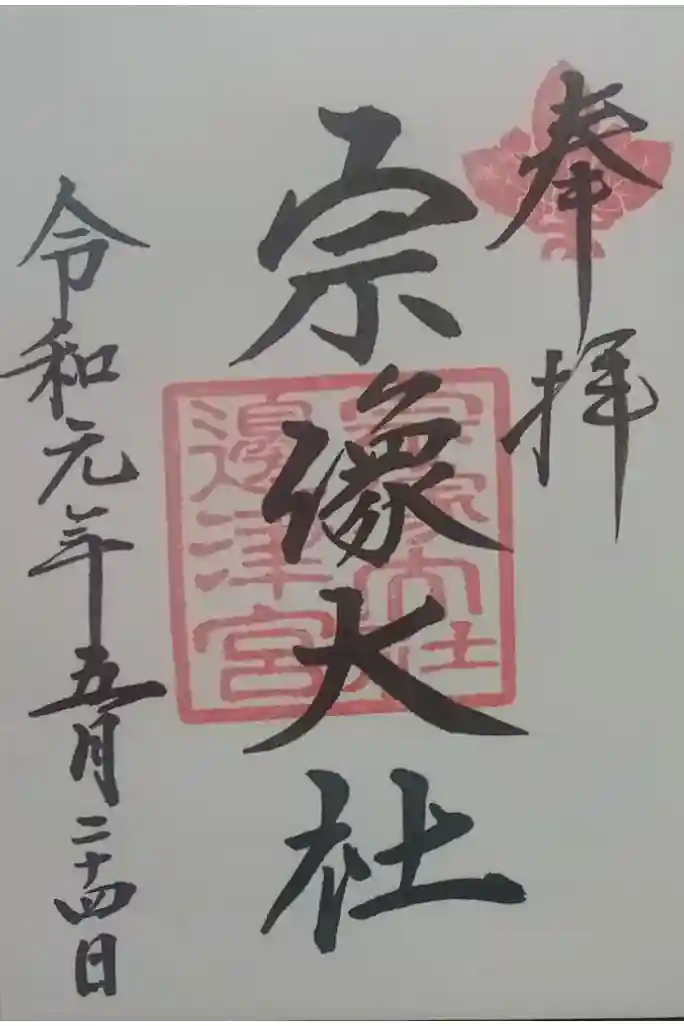 奉拝
宗像大社
宗像大社
邊津宮
令和元年五月二十四日